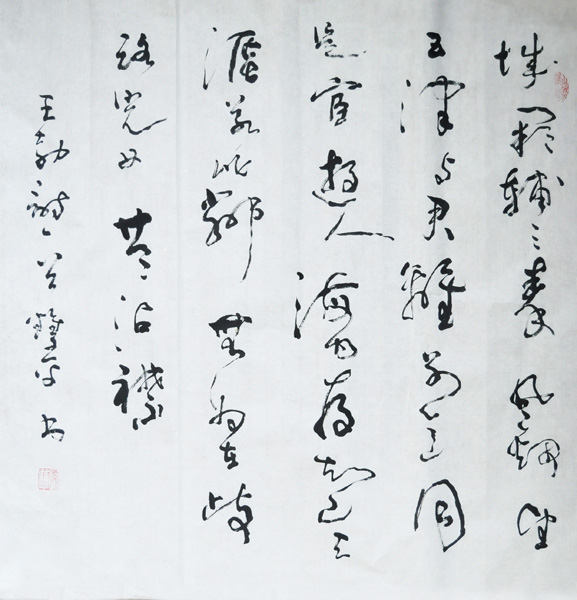 城闕輔三秦風烟望
五津与君離别意同
是宦遊人海内存知己天
涯若比鄰無為在歧
路兒女共沾襟
王勃詩一首 書